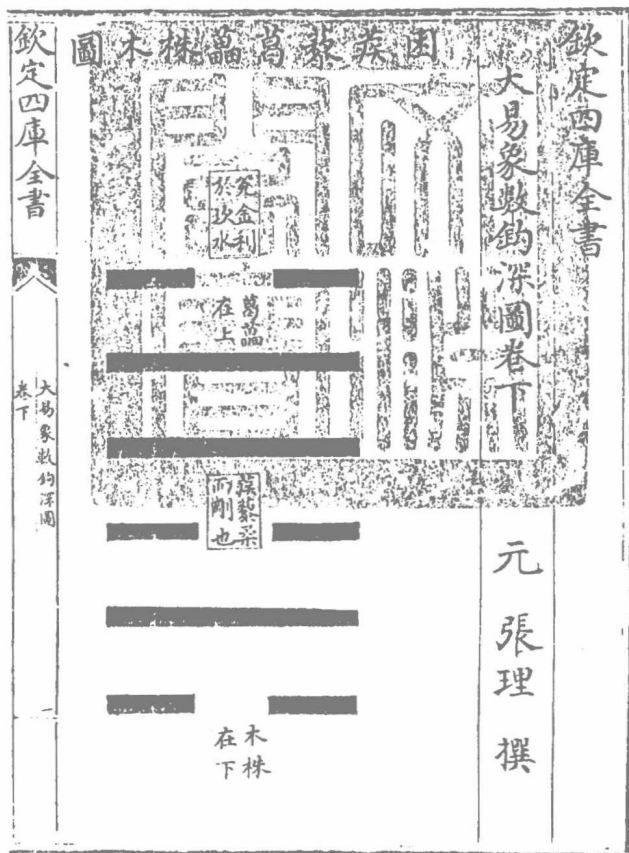 欽定四庫全書
大易象數鈎深圖卷下
元 張理 撰
困蒺藜葛藟株木圖
兌金利
於坎水
葛藟
在上
蒺藜柔
而剛也
木株
在下
欽定四庫全書
大易象數鈎深圖
卷下
一